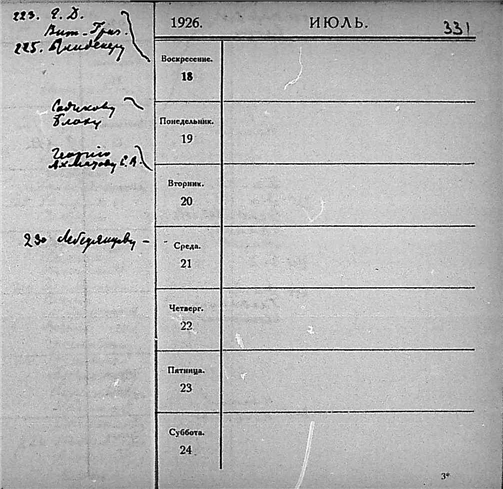 223. Е. Д.
225.
Садикову
Блоку
Георгію
Ахматову Е. А.
230 Лебедянцеву –
1926.
ИЮЛЬ.
331
Воскресение.
18
Понедельник.
19
Вторник.
20
Среда.
21
Четверг.
22
Пятница.
23
Суббота.
24
3*